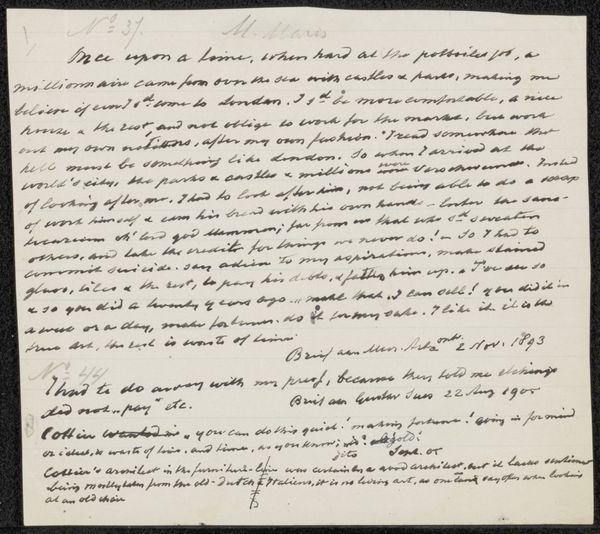 No 37. M. Maris
Once upon a time, when hard at the potboiler job, a
millionnaire came from over the sea with castles & parks, making me
believe if ever I sd. come to London. I sd. be more comfortable, a nice
house & the rest, and not oblige to work for the market, but work
out my own notions, after my own fashion. I read somewhere that
hell must be something like London. So when I arrived at the
world's city, the parks & castles & millions were Instead
of looking after me, I had to look after him, not being able to do a scrap
of work himself & earn his bread with his own hands - Enter the sanc-
tuarium oh! lord god Mammon; far from us that who sd. sweaten
others, and take the credit for things we never do! - So I had to
commit suicide. say adieu to my aspirations, make stained
glass, tiles & the rest, to pay his debts, & fatten him up. I've see so
& so you did a twenty years ago ... make that, I can sell! you did it in
a week or a day, make fortunes. do it for my sake. I like it. it is the
true art, the rest is waste of time
Brief aan Mev. 2 Nov. 1893
No 44
I had to do away with my press, because they told me etchings
did not "pay" etc.
Brief aan Gustav 22 Aug 1905
Cottier wanted is "you can do this quick! making fortune! going in for mind
or ideas, is waste of time, and time, as you know, is gold!
Sept. 05
Cottier's architect in the furniture-line was certainly a good architect, but it lacks
being mostly taken from the old-Dutch & Italiens, it is no living art, as one says often when looking
at an old chair